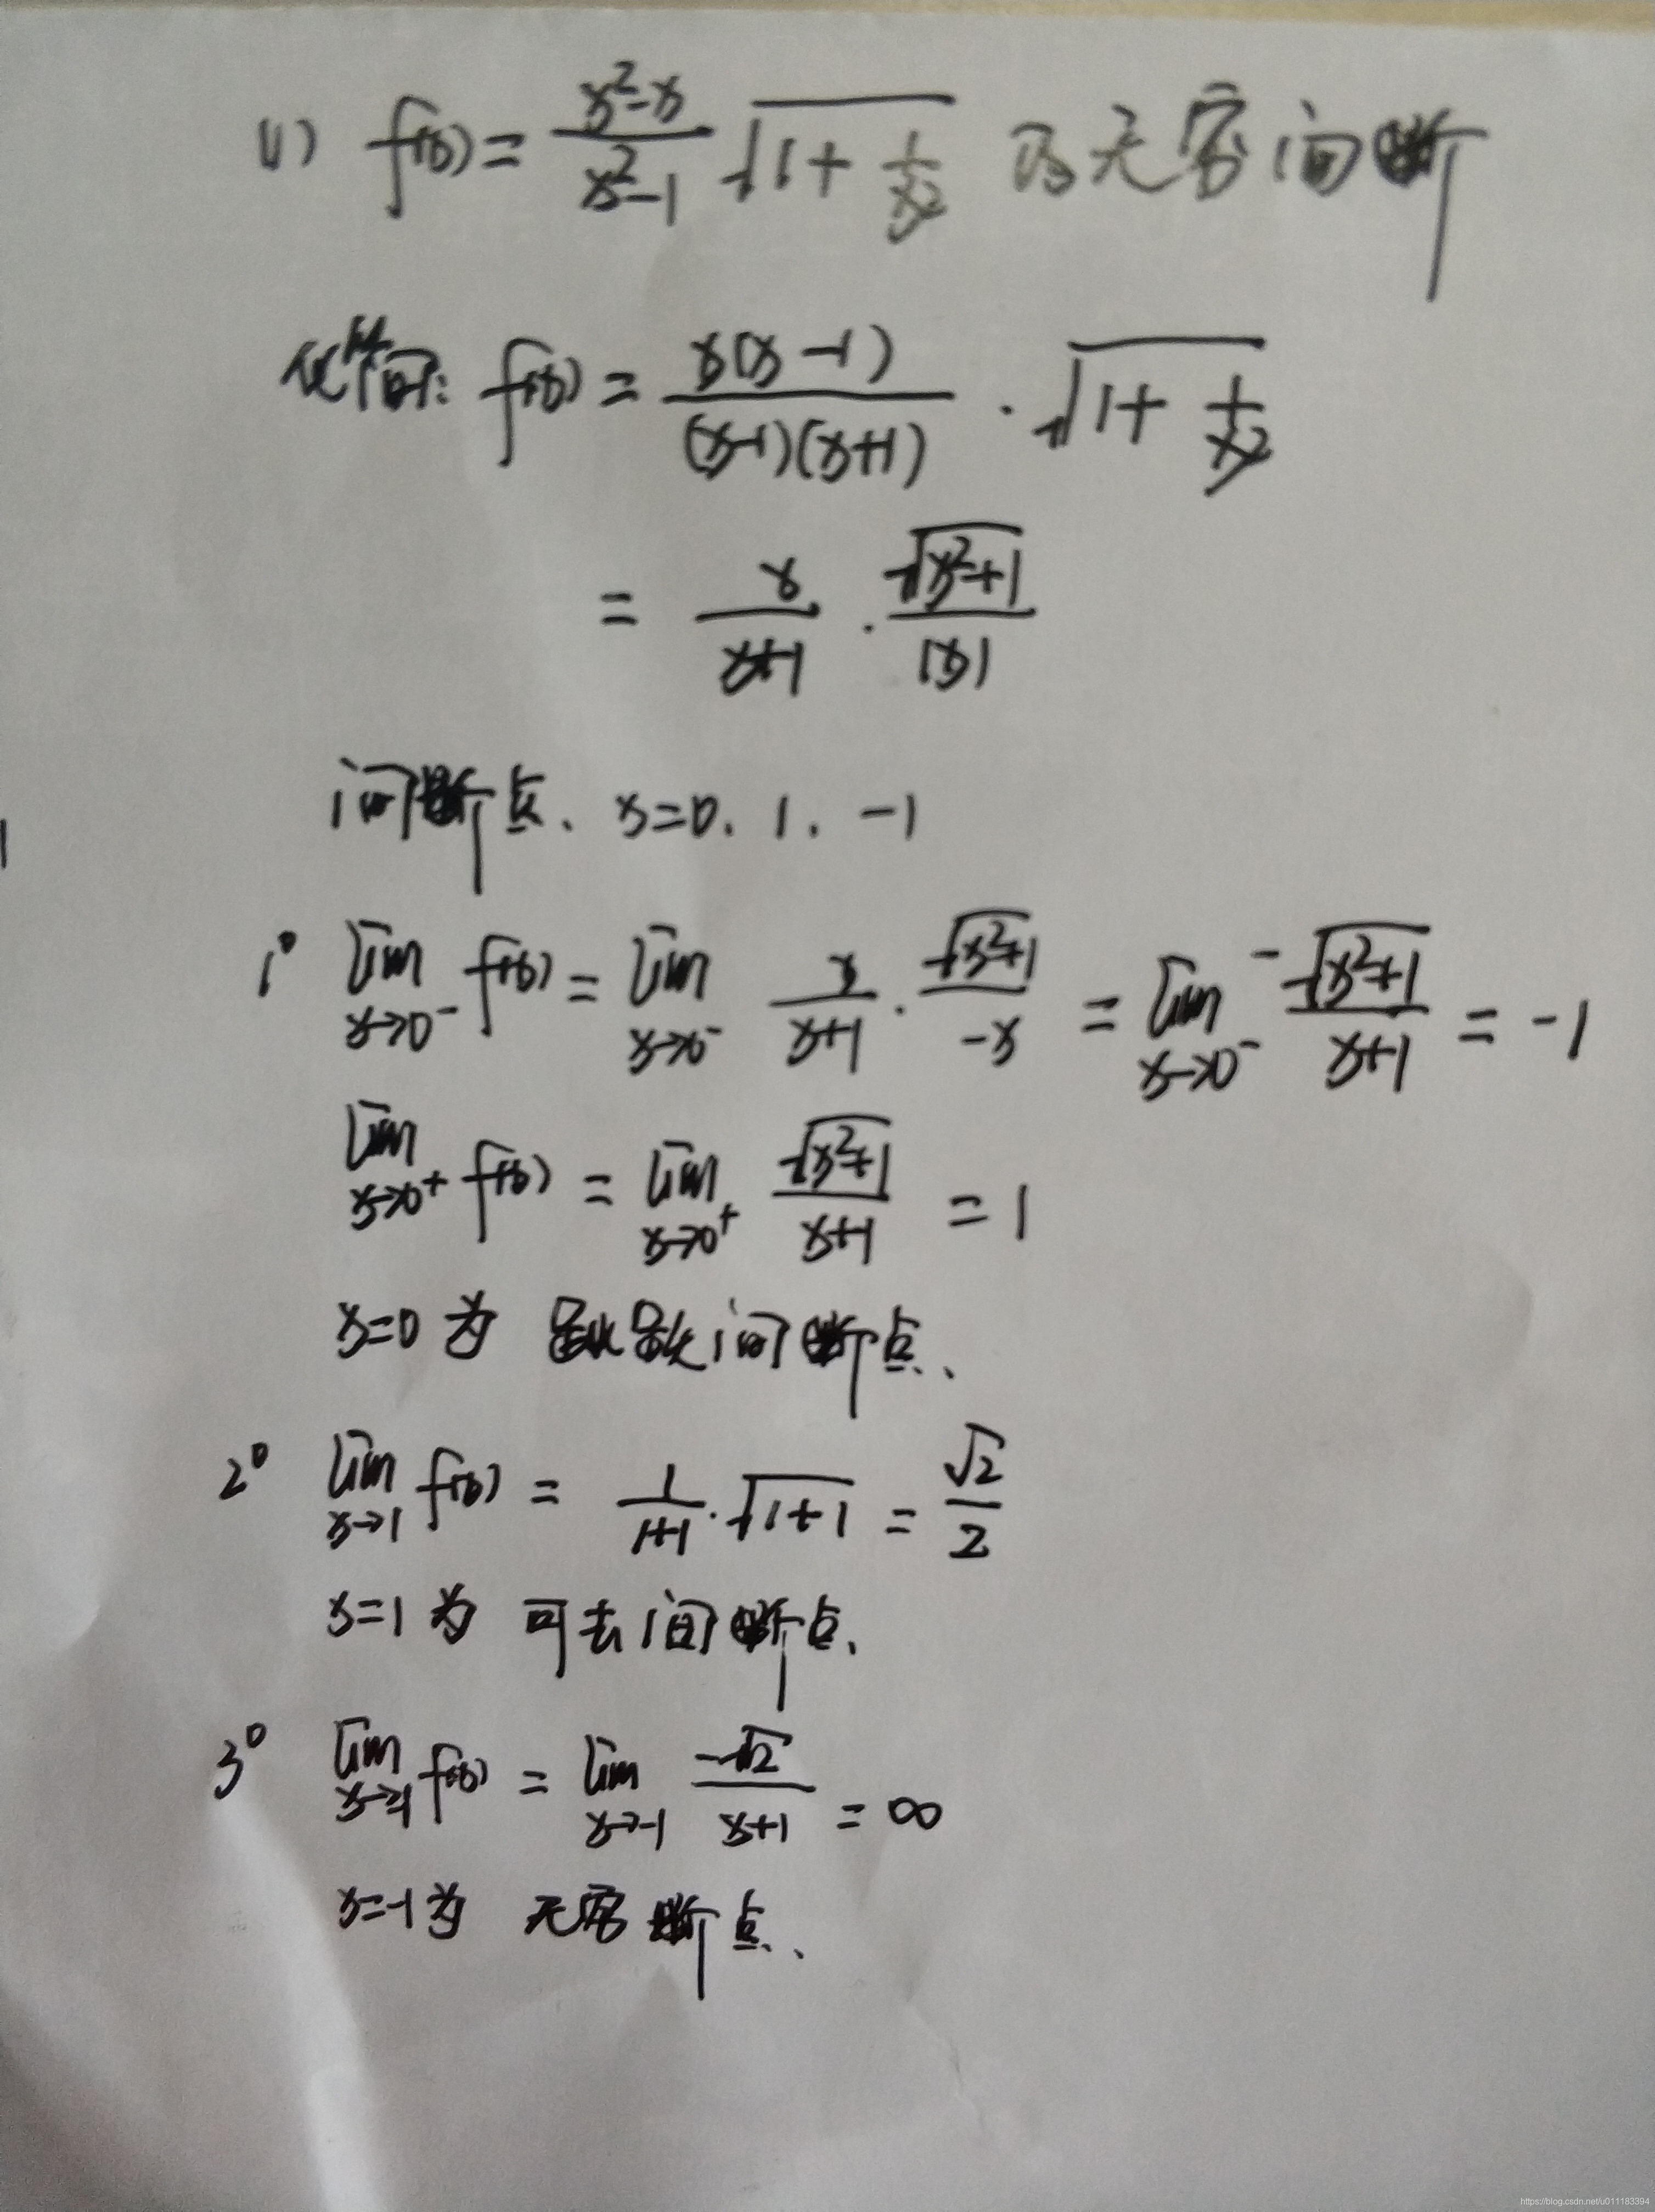 (1) f(x)=\frac{x^2-x}{x^2-1}\sqrt{1+\frac{1}{x^2}} 的无穷间断
化简: f(x)=\frac{x(x-1)}{(x-1)(x+1)}·\sqrt{1+\frac{1}{x^2}}
=\frac{x}{x+1}·\frac{\sqrt{x^2+1}}{|x|}
间断点、x=0、1、-1
1° \lim_{x→0^-}f(x)=\lim_{x→0^-}\frac{x}{x+1}·\frac{\sqrt{x^2+1}}{-x}=\lim_{x→0^-}\frac{-\sqrt{x^2+1}}{x+1}=-1
\lim_{x→0^+}f(x)=\lim_{x→0^+}\frac{\sqrt{x^2+1}}{x+1}=1
x=0为 跳跃间断点、
2° \lim_{x→1}f(x)=\frac{1}{1+1}·\sqrt{1+1}=\frac{\sqrt{2}}{2}
x=1为 可去间断点、
3° \lim_{x→-1}f(x)=\lim_{x→-1}\frac{-\sqrt{2}}{x+1}=∞
x=-1为 无穷断点、
https://blog.csdn.net/u011183394